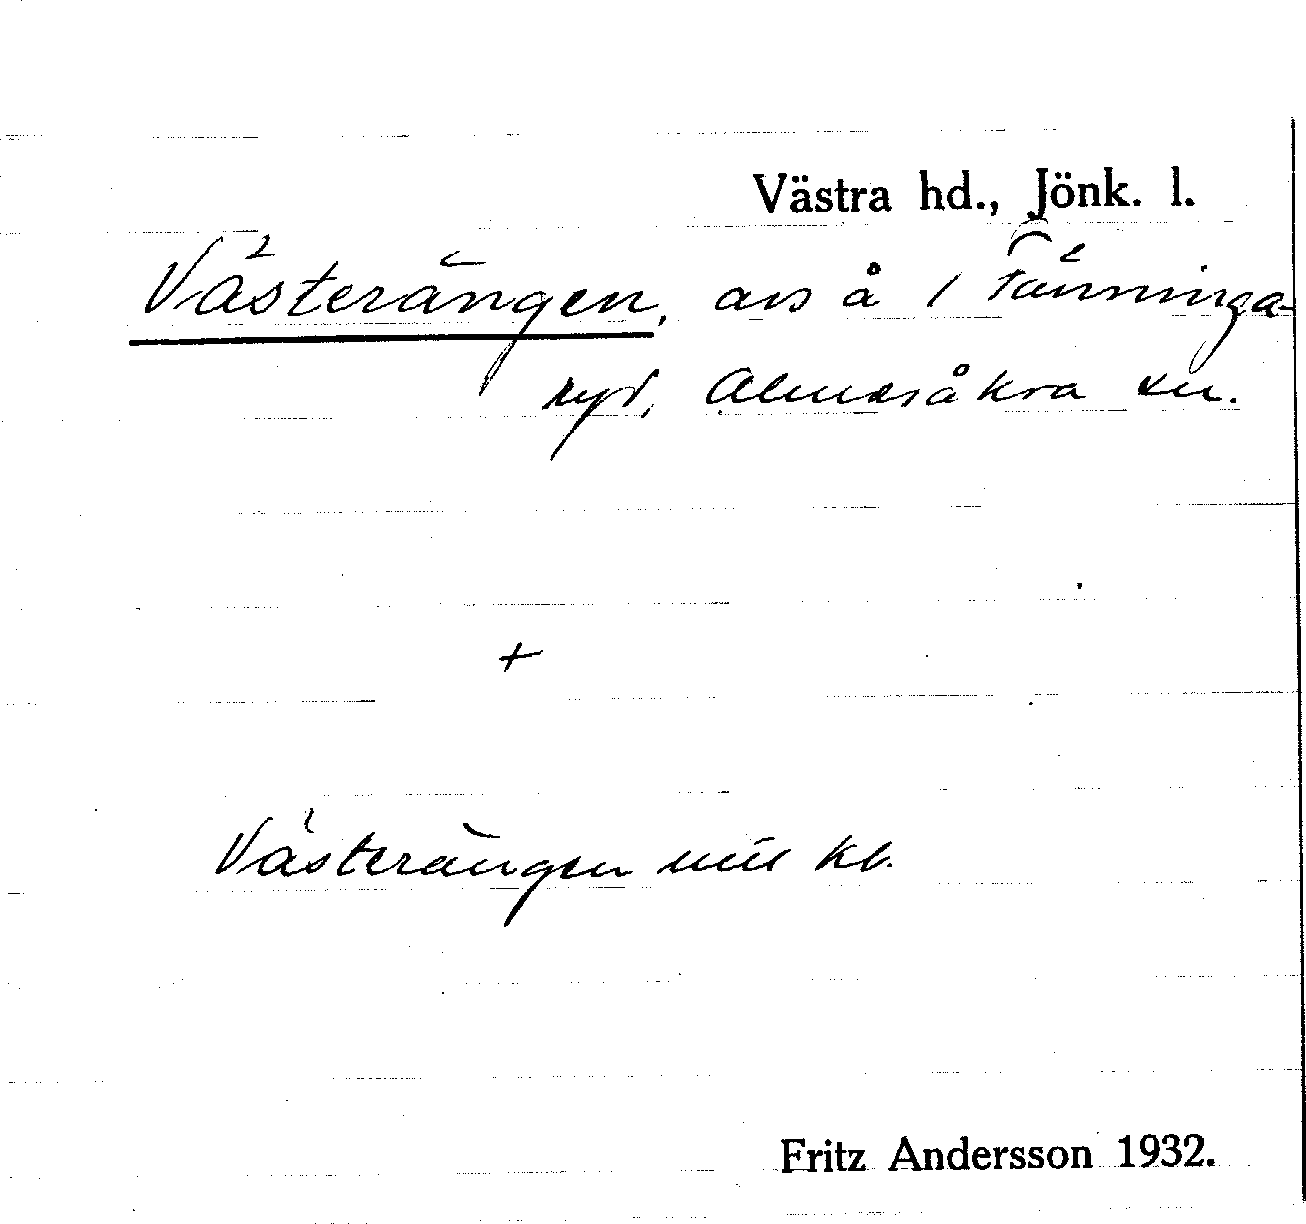 Västra hd., Jönk. l.
Västerängen, avs å 1 Tänninga-
ryd, Almesåkra sn.
+
Västerängen mtl kb.
Fritz Andersson 1932.